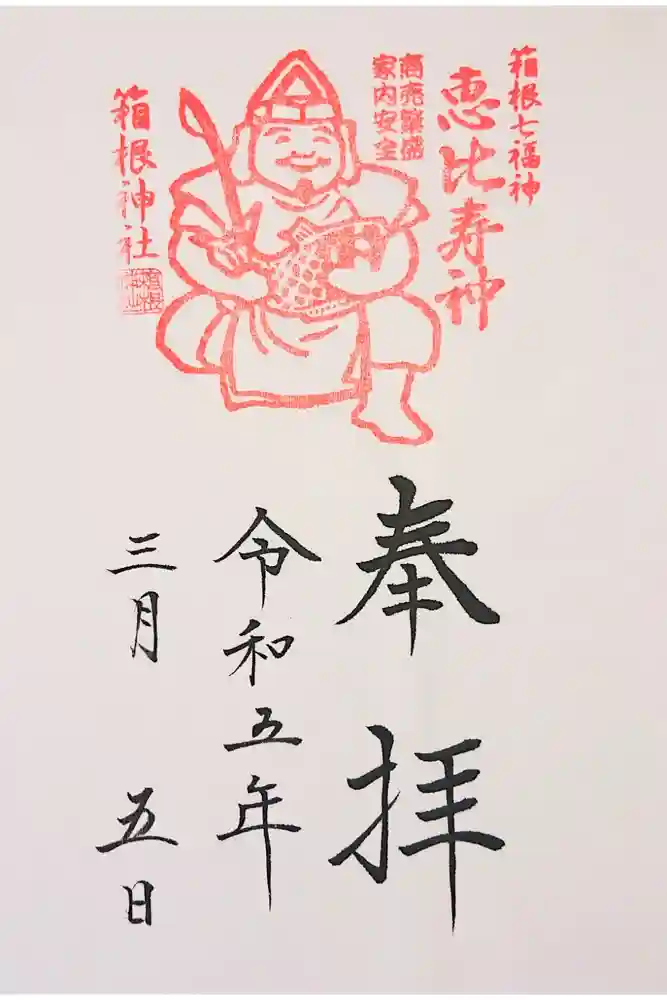 箱根七福神
恵比寿神
商売繁盛
家内安全
箱根神社
奉拝
令和五年
三月五日